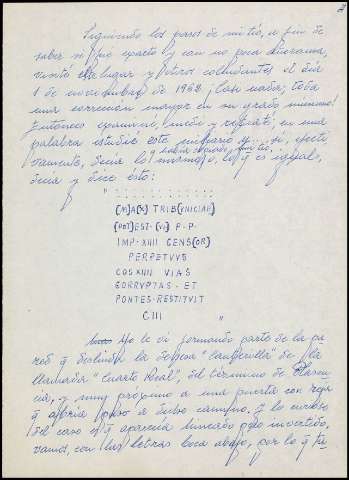 Siguiendo los pasos de mi tío, a fin de
saber si fue exacto y con no poca
visité el lugar y otros colindantes el día
1 de noviembre de 1968; caso nada; toda
una corrección mayor en su grado máximo!
Entonces examiné, medí y, en una
palabra estudié este miliario y, sí, efecti-
vamente, decía lo mismo q. había copiado mi tío. Lo q es igual,
decía y dice esto:
"
(M)A(X) TRIB(VNICIAE)
(POT)EST·(VII) P·P·
IMP·XIIII CENS(OR)
PERPETVVS
COS XIIII VIAS
CORRVPTAS·ET
PONTES·RESTITVIT
CIII "
Yo le vi formando parte de la pa-
red q deslinda la dehesa de la
llamada "Cuarto Real", del término de Plasen-
cia, y muy próximo a una puerta con reja
q abría paso a dicho camino. Y lo curioso
del caso es q aparecía hincado pero invertido,
vamos, con las letras boca abajo, por lo q tu-